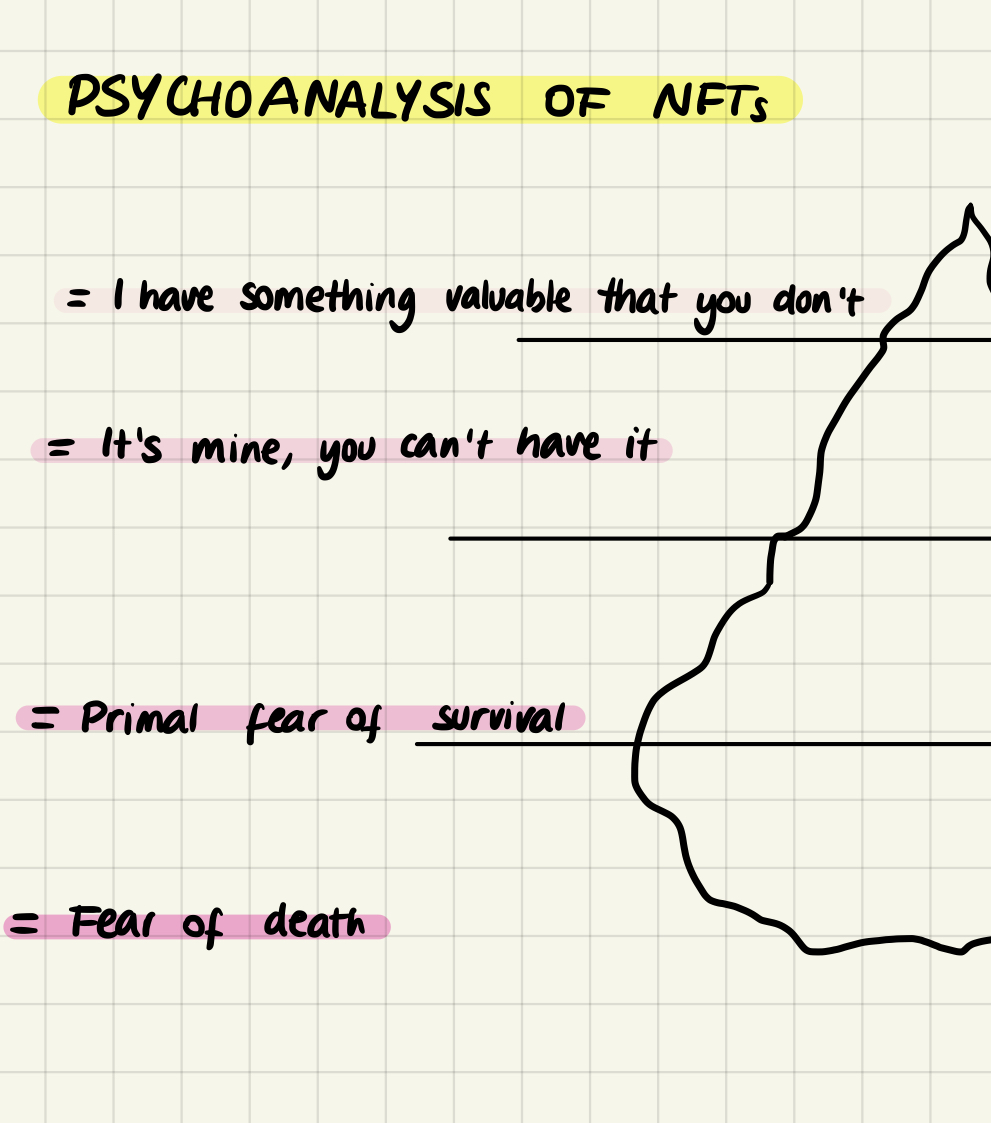 PSYCHOANALYSIS OF NFTs
= I have something valuable that you don't
= It's mine, you can't have it
= Primal fear of survival
= Fear of death